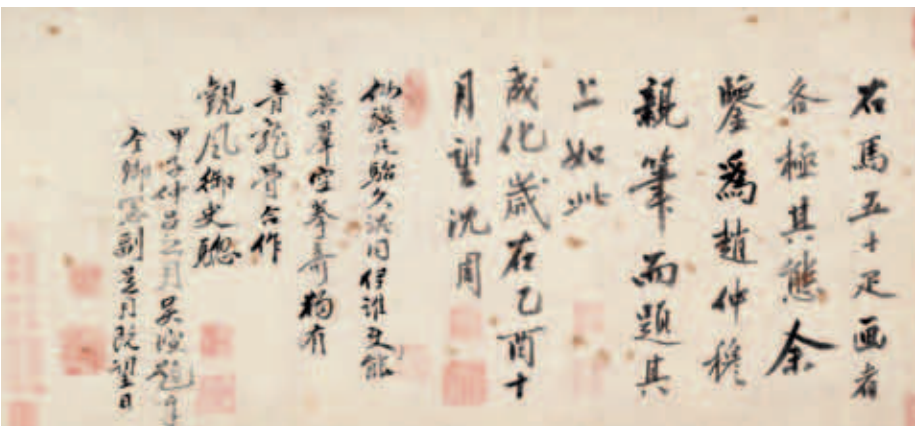 右馬五十疋画者
各極其態余
鑒爲趙仲穆
親筆而題其
上如此
成化歲在乙酉十
月望沈周
仙騏凡駘久混同伊誰更能
冀羣空奉奇獨有
青龍骨合作
觀風御史驄
甲子仲呂之月吳
全卿 副是月既望日